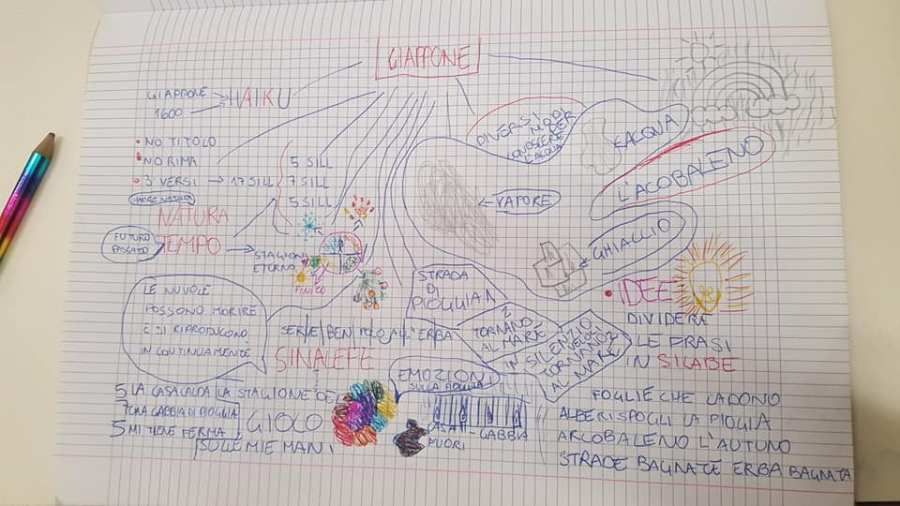 GIAPPONE
GIAPPONE
1600
HAIKU
NO TITOLO
NO RIMA
3 VERSI → 17 SILL
5 SILL
7 SILL
5 SILL
NATURA
TEMPO
FUTURO
PASSATO
STAGIONI
ETERNO
DIVERSI MODI
L'ACQUA
L'ACOBALENO
VAPORE
GHIALLIO
LE NUVOLE
POSSONO MORIRE
E SI RIPRODUCONO
IN CONTINUAMENTE
STRADA
DI
PIOGGIA
L'ERBA
SINALEFE
TORNANO
AL MARE
IN SILENZIO
AL MARE
IDEE
DIVIDERE
LE FRASI
IN SILABE
EMOZIONI
SULLA
5 LA CASA CALDA
7 UNA GABBIA DI PIOGGIA
5 MI TIENE FERMA
LA STAGIONE DE
GIOCO
SULLE MIE MANI
FUORI
GABBIA
FOGLIE CHE CADONO
ALBERI SPOGLI LA PIOGIA
ARCOBALENO L'AUTUNO
STRADE BAGNATE ERBA BAGNATA